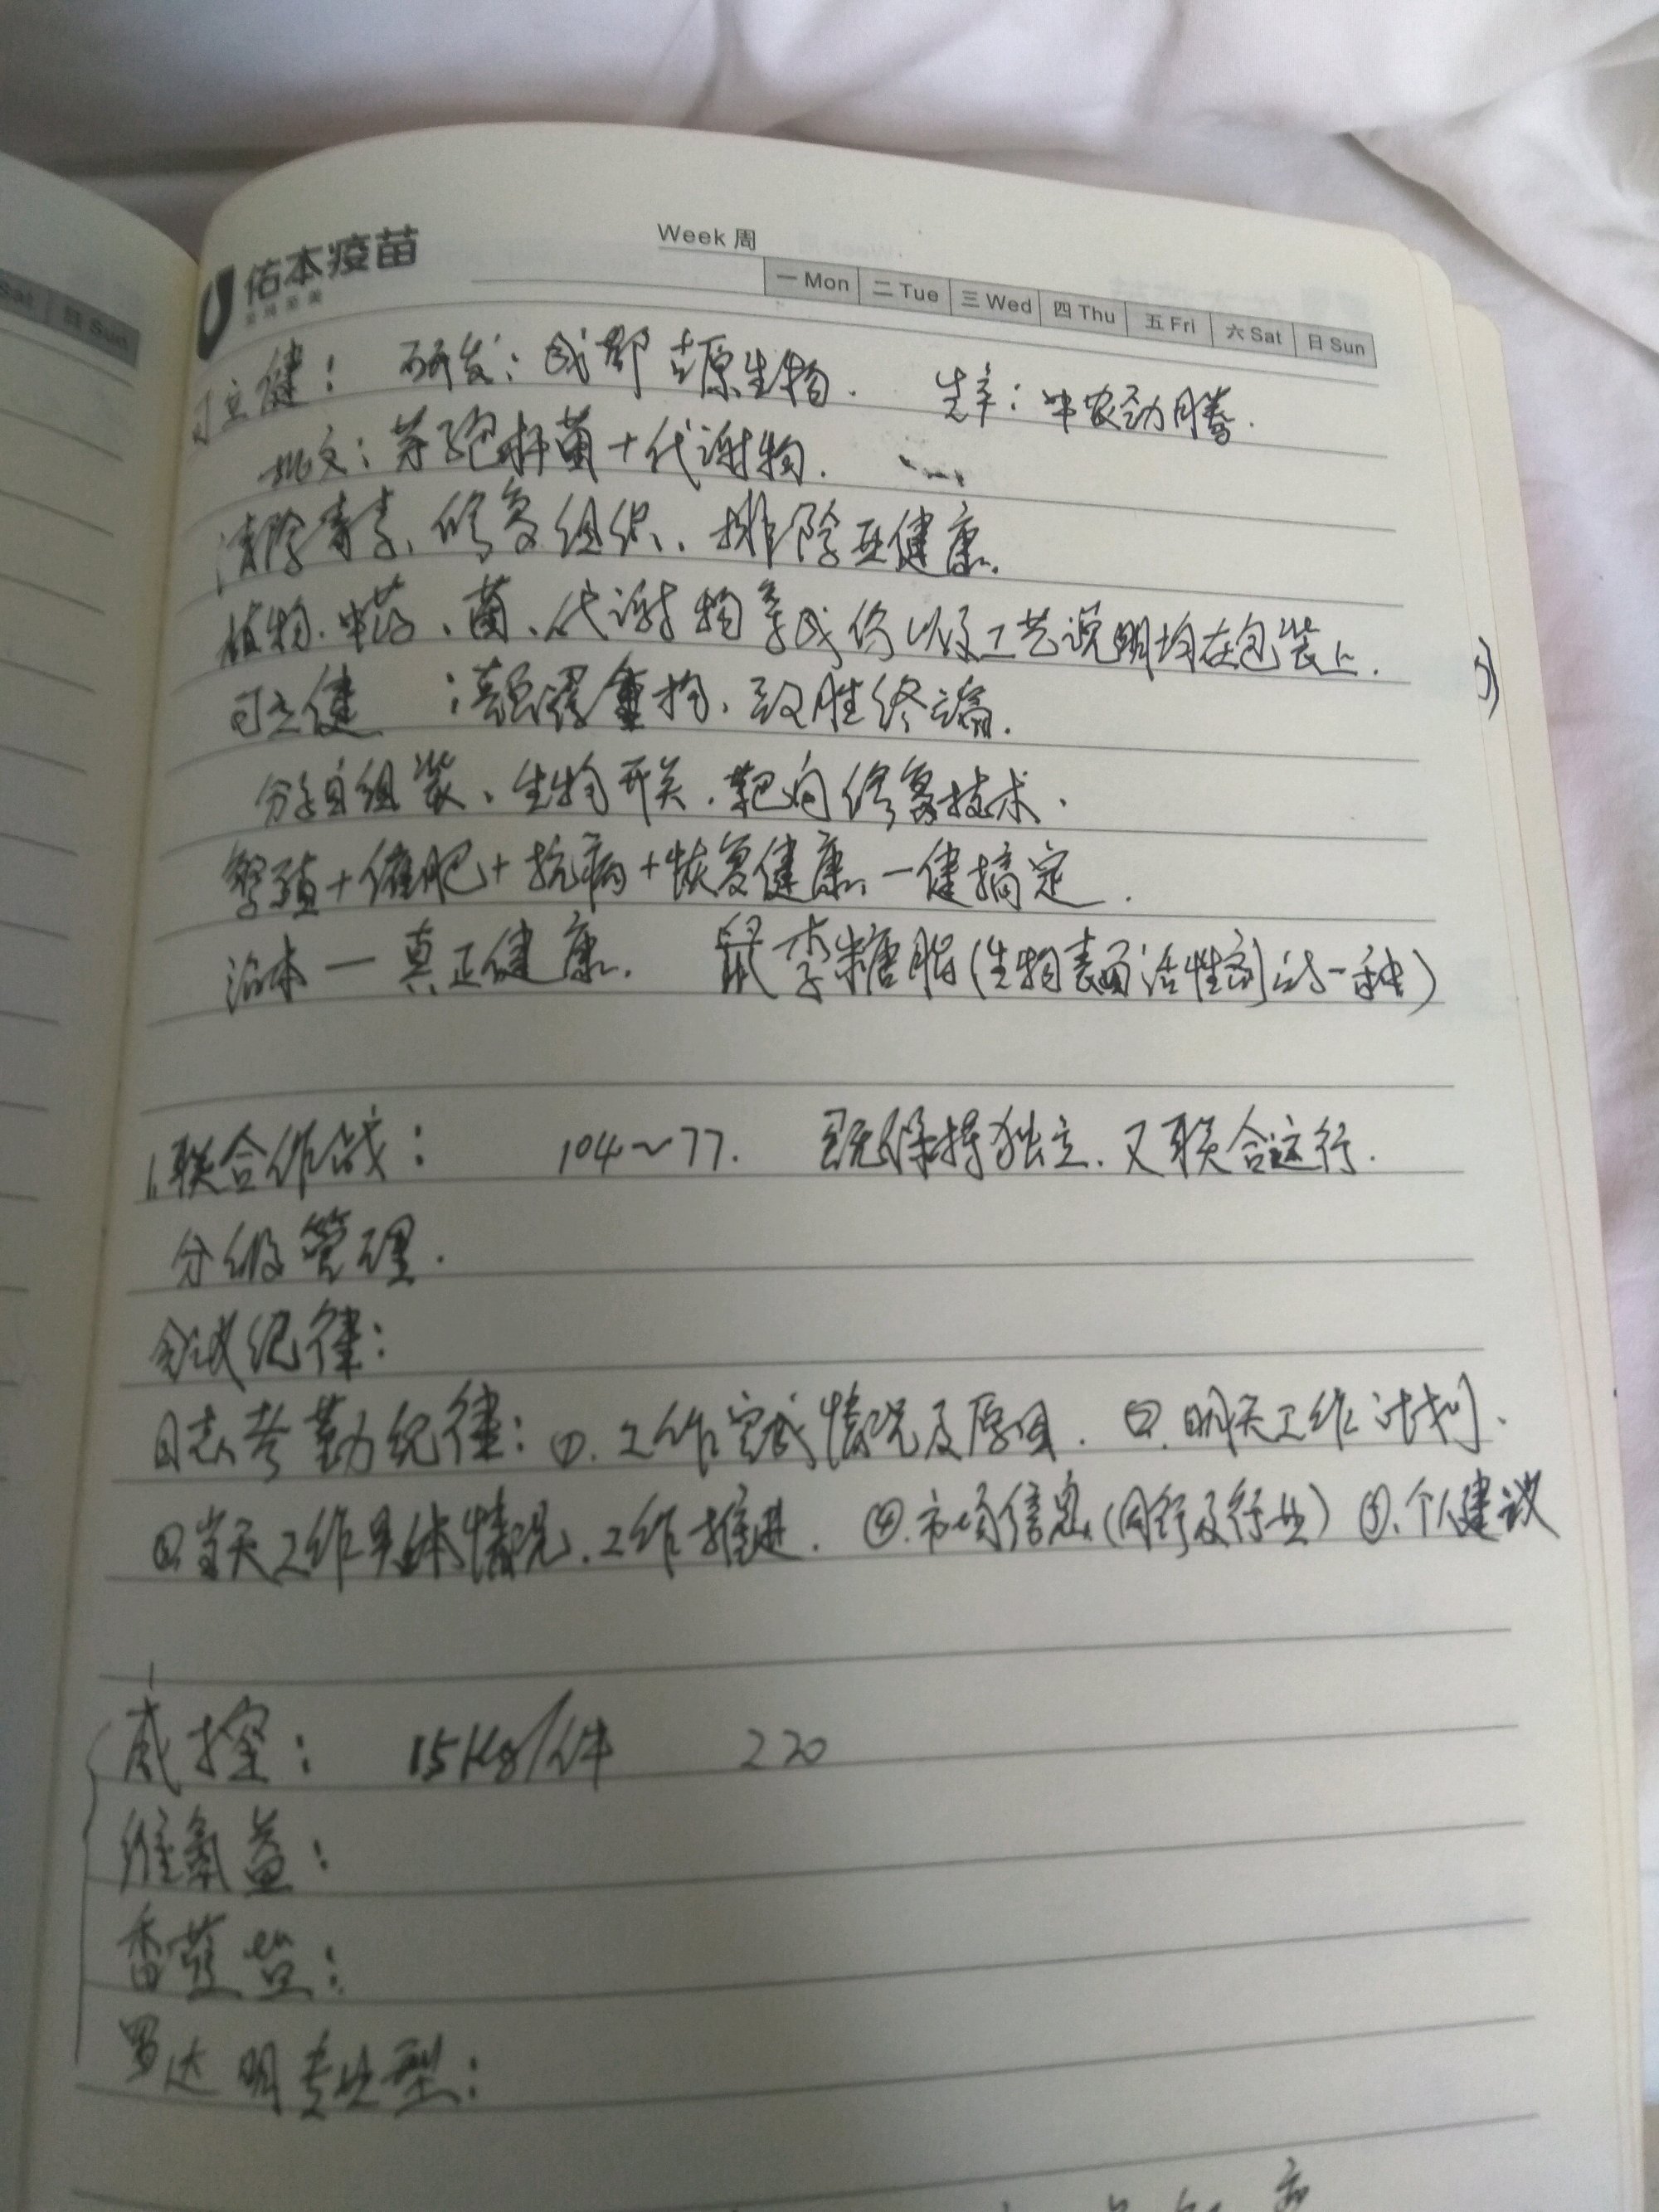 佑本疫苗
Week 周
一 Mon 二 Tue 三 Wed 四 Thu 五 Fri 六 Sat 日 Sun
Sat 日 Sun
可立健： 研发：成都吉原生物. 生产：中农劲腾.
批文：芽孢杆菌+代谢物.
清除毒素、修复组织、排除亚健康.
植物、中药、菌、代谢物等成份以及工艺说明均在包装上.
可立健 ：颠覆重构、致胜终端.
分子自组装、生物开关、靶向修复技术、
繁殖+催肥+抗病+恢复健康、一健搞定.
治本一真正健康. 鼠李糖脂(生物表面活性剂的一种)
1.联合作战： 104~77. 既保持独立、又联合运行.
分级管理.
会议纪律：
日志考勤纪律：①.工作完成情况及原因. ②.明天工作计划、
③当天工作具体情况、工作推进. ④.市场信息(同行及行业) ⑤、个人建议
威控： 15Kg/件 220
维氧益：
香蓝：
罗达明专业型：